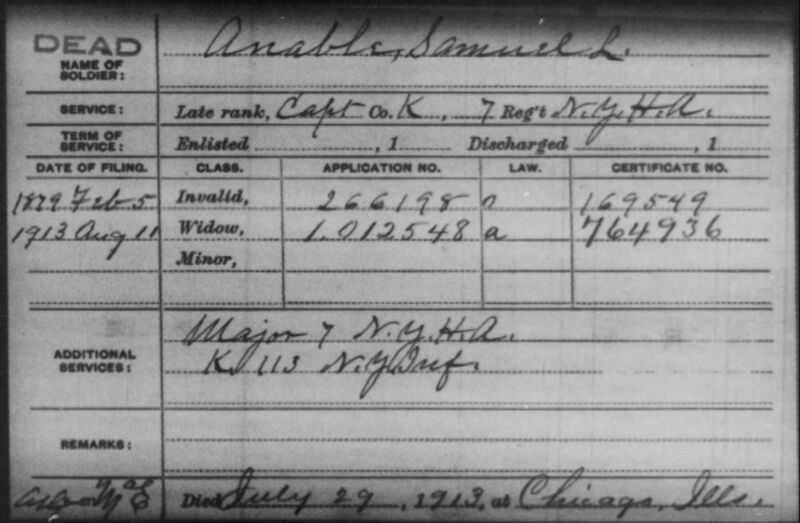 DEAD
NAME OF SOLDIER: Anable, Samuel L.
SERVICE: Late rank, Capt Co. K, 7 Reg't N.Y.H.A.
TERM OF SERVICE: Enlisted , 1 Discharged , 1
DATE OF FILING. CLASS. APPLICATION NO. LAW. CERTIFICATE NO.
1879 Feb 5 Invalid, 266198 169549
1913 Aug 11 Widow, 1.012548 a 764936
Minor,
ADDITIONAL SERVICES: Major 7 N.Y.H.A.
K, 113 N.Y. Inf.
REMARKS:
Died July 29, 1913, at Chicago, Ills.